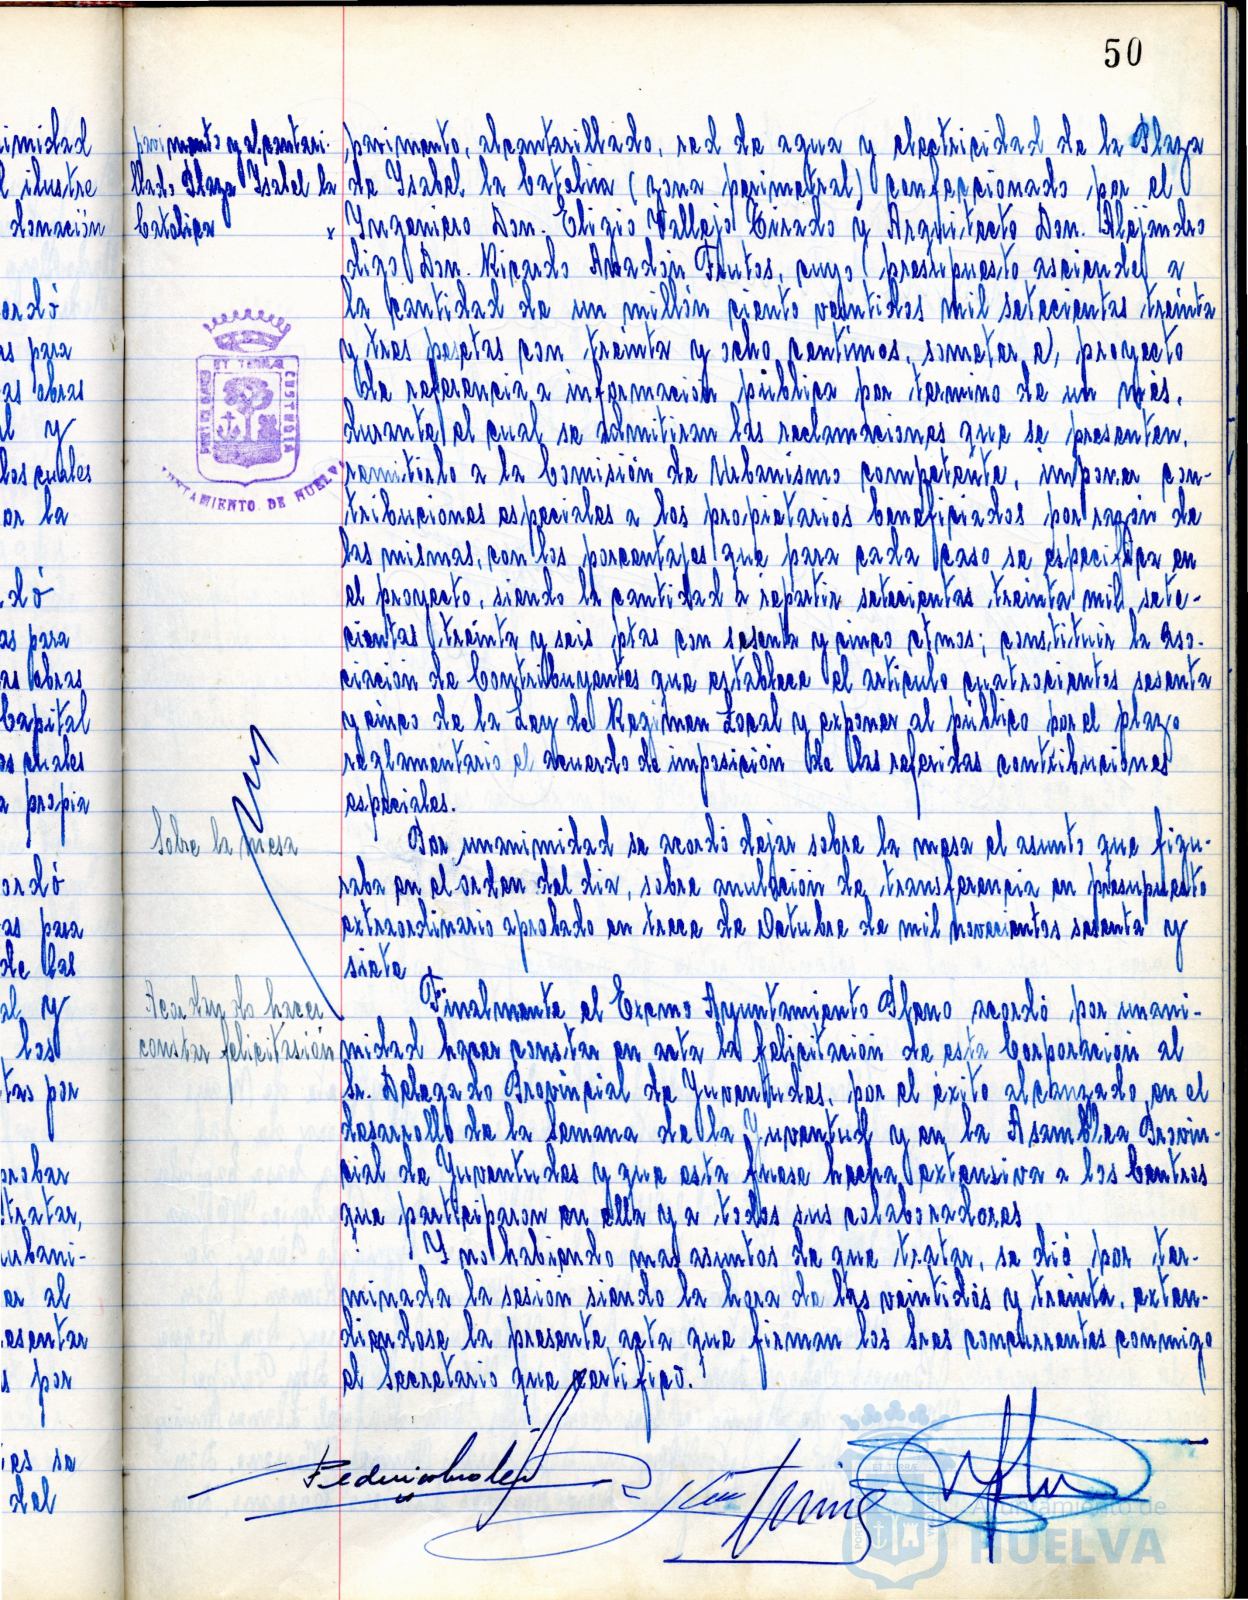 50
imidad
l ilustre
donación
ordó
as para
as obras
al y
los cuales
or la
dó
as para
as obras
Capital
os cuales
a propia
ordó
as para
de las
al y
los
tas por
probar
tratar,
urbani-
er al
esentar
s por
es se
del
pavimento y alcantari-
llado Plaza Isabel la
Catolica x
pavimento, alcantarillado, red de agua y electricidad de la Plaza
de Ysabel la Catolica (zona perimetral) confeccionado por el
Yngeniero Don. Eligio Vallejo Tirado y Arquitecto Don. Alejandro
digo Don. Ricardo Anadón Frutos, cuyo presupuesto asciende a
la cantidad de un millón ciento veintidos mil setecientas treinta
y tres pesetas con treinta y ocho centimos, someter el proyecto
de referencia a información pública por termino de un més,
durante el cual se admitiran las reclamaciones que se presenten,
remitirlo a la Comisión de Urbanismo competente, imponer con-
tribuciones especiales a los propietarios beneficiados por razón de
las mismas, con los porcentajes que para cada caso se especifica en
el proyecto, siendo la cantidad a repartir setecientas treinta mil sete-
cientas treinta y seis ptas con sesenta y cinco ctmos; constituir la aso-
ciación de Contribuyentes que establece el articulo cuatrocientos sesenta
y cinco de la Ley de Regimen Local y exponer al público por el plazo
reglamentario el acuerdo de imposición de las referidas contribuciones
especiales.
Sobre la mesa
Por unanimidad se acordó dejar sobre la mesa el asunto que figu-
raba en el orden del dia, sobre anulación de transferencia en presupuesto
extraordinario aprobado en trece de Octubre de mil novecientos sesenta y
siete
Acordando hacer
constar felicitasión
Finalmente el Excmo Ayuntamiento Pleno acordó por unani-
midad hacer constar en acta la felicitación de esta Corporación al
Sr. Delegado Provincial de Yuventudes, por el éxito alcanzado en el
desarrollo de la Semana de la Yuventud y en la Asamblea Provin-
cial de Yuventudes y que esta fuese hecha extensiva a los Centros
que participaron en ella y a todos sus colaboradores
Y no habiendo mas asuntos de que tratar, se dió por ter-
minada la sesión siendo la hora de las veintidós y treinta, exten-
diendose la presente acta que firman los Sres concurrentes conmigo
el Secretario que certifico.
ET TERRAE CUSTODIA
AYUNTAMIENTO DE HUELVA
Ayuntamiento de
HUELVA